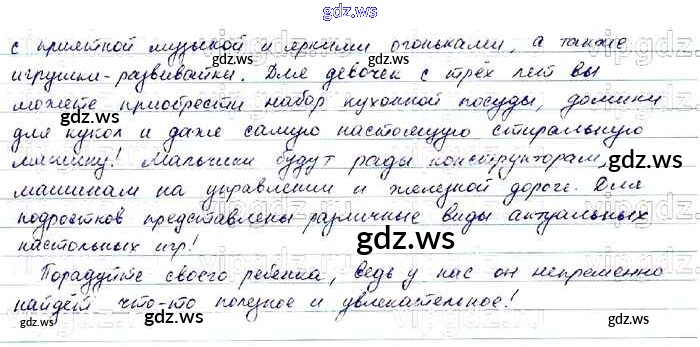 gdz.ws
с приятной музыкой и яркими огоньками, а также
игрушки-развивайки. Для девочек с трёх лет вы
можете приобрести набор кухонной посуды, домики
для кукол и даже самую настоящую стиральную
машину! Мальчики будут рады конструкторам,
машинам на управлении и железной дороге. Для
подростков представлены различные виды актуальных
настольных игр!
Порадуйте своего ребенка, ведь у нас он непременно
найдёт что-то полезное и увлекательное!
gdz.ws
gdz.ws
gdz.ws
gdz.ws
gdz.ws
gdz.ws
gdz.ws
gdz.ws
gdz.ws